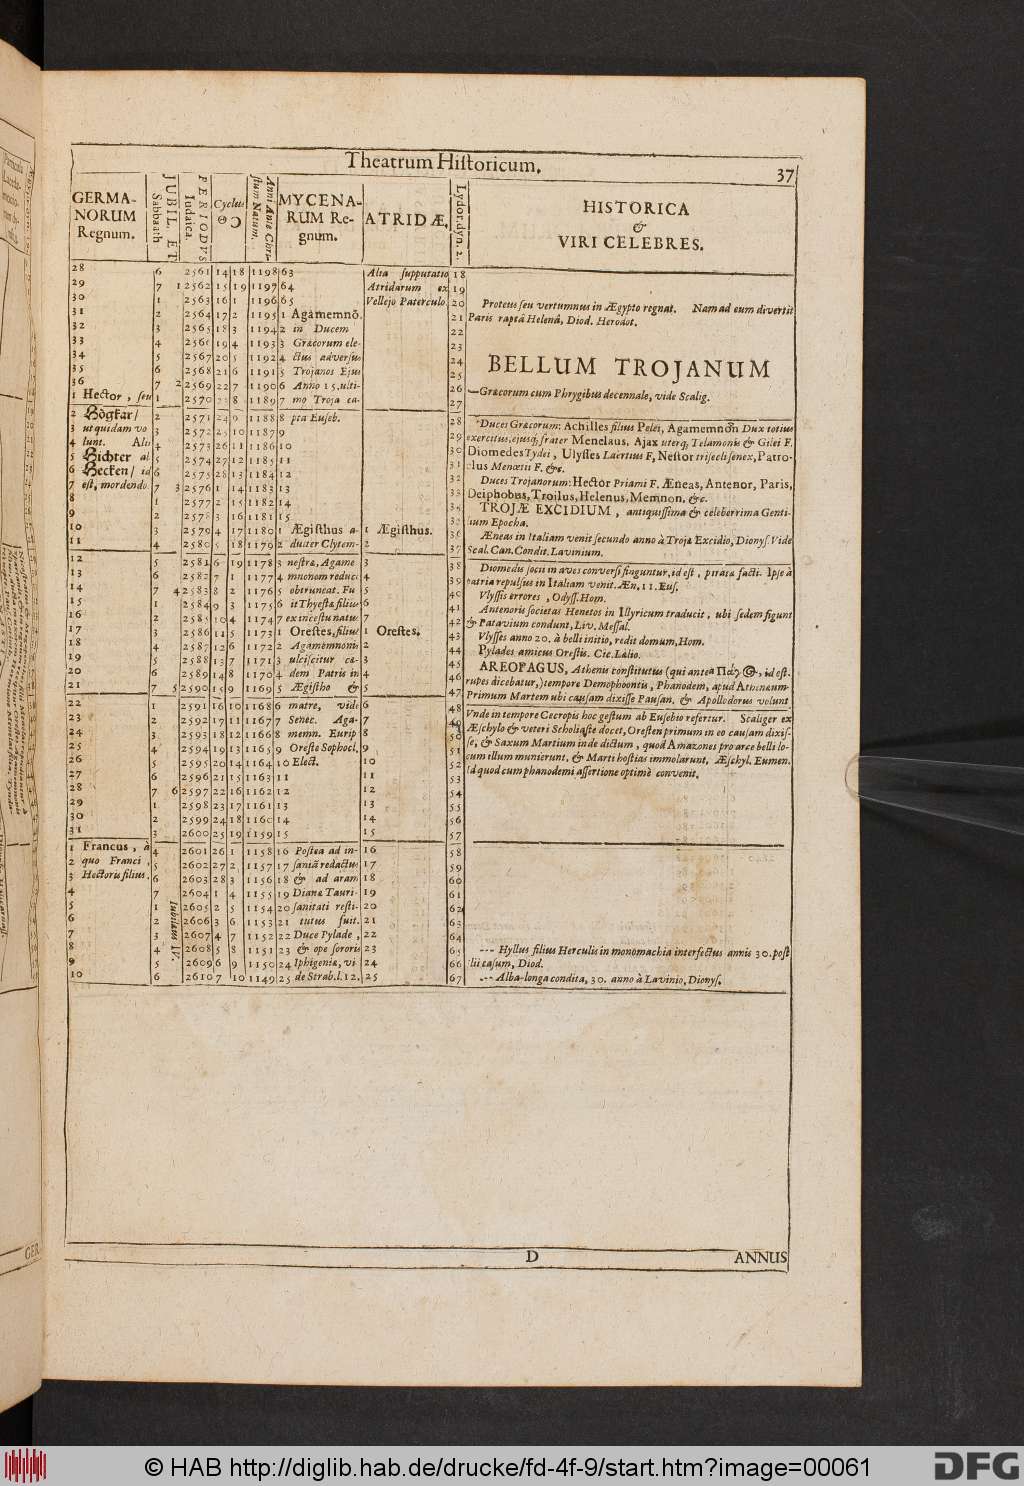 Theatrum Historicum.
37
GERMA-
NORUM
Regnum.
JUBIL. ET
Sabbath
PERIODVS
Iudaica.
Cyclus
☉ ☽
Anni Ante Chri-
stum Natum.
MYCENA-
RUM Re-
gnum.
ATRIDÆ.
Lydor. dyn. 2.
HISTORICA
&
VIRI CELEBRES.
28
29
30
31
32
33
34
35
36
1 Hector, seu
2 Högkar/
3 ut quidam vo
4 lunt. Alii
5 Hichter al
6 Hecken/ id
7 est, mordendo.
8
9
10
11
12
13
14
15
16
17
18
19
20
21
22
23
24
25
26
27
28
29
30
31
1 Francus, à
2 quo Franci,
3 Hectoris filius.
4
5
6
7
8
9
10
6 2561 14 18 1198 63
7 1 2562 15 19 1197 64
1 2563 16 1 1196 65
2 2564 17 2 1195 1 Agamemnō.
3 2565 18 3 1194 2 in Ducem
4 2566 19 4 1193 3 Græcorum ele-
5 2567 20 5 1192 4 ctus adversus
6 2568 21 6 1191 5 Trojanos Ejus
7 2 2569 22 7 1190 6 Anno 15. ulti-
1 2570 23 8 1189 7 mo Troja ca-
2 2571 24 9 1188 8 pta Euseb.
3 2572 25 10 1187 9
4 2573 26 11 1186 10
5 2574 27 12 1185 11
6 2575 28 13 1184 12
7 3 2576 1 14 1183 13
1 2577 2 15 1182 14
2 2578 3 16 1181 15
3 2579 4 17 1180 1 Ægisthus a-
4 2580 5 18 1176 2 dulter Clytem-
5 2581 6 19 1178 3 nestræ, Agame
6 2582 7 1 1177 4 mnonom reduce
7 4 2583 8 2 1176 5 obtruncat. Fu
1 2584 9 3 1175 6 it Thyestæ filius
2 2585 10 4 1174 7 ex incestu natus
3 2586 11 5 1173 1 Orestes, filius
4 2587 12 6 1172 2 Agamemnoni
5 2588 13 7 1171 3 ulciscitur ca-
6 2589 14 8 1170 4 dem Patris in
7 5 2590 15 9 1169 5 Ægistho &
1 2591 16 10 1168 6 matre, vide
2 2592 17 11 1167 7 Senec. Aga-
3 2593 18 12 1166 8 memn. Eurip
4 2594 19 13 1165 9 Oreste Sophocl.
5 2595 20 14 1164 10 Elect.
6 2596 21 15 1163 11
7 6 2597 22 16 1162 12
1 2598 23 17 1161 13
2 2599 24 18 1160 14
3 2600 25 19 1159 15
4 2601 26 1 1158 16 Postea ad in-
5 2602 27 2 1157 17 saniā redactus
6 2603 28 3 1156 18 & ad aram
7 2604 1 4 1155 19 Dianæ Tauri-
1 2605 2 5 1154 20 sanitati resti-
2 2606 3 6 1153 21 tutus fuit.
3 2607 4 7 1152 22 Duce Pylade,
4 2608 5 8 1151 23 & ope sororis
5 2609 6 9 1150 24 Iphigeniæ, vi
6 2610 7 10 1149 25 de Strab. l. 12.
Iubilæus IV.
Alta supputatio
Atridarum ex
Vellejo Paterculo
1 Ægisthus.
2
3
4
5
6
7
1 Orestes.
2
3
4
5
6
7
8
9
10
11
12
13
14
15
16
17
18
19
20
21
22
23
24
25
18
19
20
21
22
23
24
25
26
27
28
29
30
31
32
33
35
36
37
38
39
40
41
42
43
44
45
46
47
48
49
50
51
52
53
54
55
56
57
58
59
60
61
62
63
64
65
66
67
Proteus seu vertumnus in Ægypto regnat. Nam ad eum divertit
Paris raptâ Helenâ, Diod. Herodot.
BELLUM TROJANUM
Græcorum cum Phrygibus decennale, vide Scalig.
Duces Græcorum: Achilles filius Pelei, Agamemnōn Dux totius
exercitus, ejusq; frater Menelaus, Ajax uterq; Telamonis & Oilei F.
Diomedes Tydei, Ulysses Laertius F, Nestor triseclisenex, Patro-
clus Menœtii F. &c.
Duces Trojanorum: Hector Priami F. Æneas, Antenor, Paris,
Deiphobus, Troilus, Helenus, Memnon, &c.
TROJÆ EXCIDIUM, antiquissima & celeberrima Genti-
lium Epocha.
Æneas in Italiam venit secundo anno à Trojæ Excidio, Dionys. Vide
Scal. Can. Condit. Lavinium.
Diomedis socii in aves conversi finguntur, id est, piratæ facti. Ipse à
patria repulsus in Italiam venit. Æn. 11. Eus.
Vlyssis errores, Odyss. Hom.
Antenoris societas Henetos in Illyricum traducit, ubi sedem figunt
& Patavium condunt, Liv. Messal.
Vlysses anno 20. à belli initio, redit domum, Hom.
Pylades amicus Orestis. Cic. Lælio.
AREOPAGUS, Athenis constitutus (qui antea
id est.
rupes dicebatur,) tempore Demophoontis, Phanodem, apud Athenæum.
Primum Martem ubi causam dixisse Pausan. & Apollodorus volunt
Vnde in tempore Cecropis hoc gestum ab Eusebio refertur. Scaliger ex
Æschylo & veteri Scholiaste docet, Oresten primum in eo causam dixis-
se, & Saxum Martium inde dictum, quod Amazones pro arce belli lo-
cum illum munierunt, & Marti hostias immolarunt, Æschyl. Eumen.
Id quod cum phanodemi assertione optimè convenit.
--- Hyllus filius Herculis in monomachia interfectus annis 30. post
Ilii casum, Diod.
--- Alba-longa condita, 30. anno à Lavinio, Dionys.
D
ANNUS
GER
© HAB http://diglib.hab.de/drucke/fd-4f-9/start.htm?image=00061
DFG